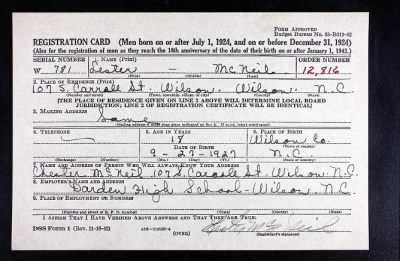 FORM APPROVED
Budget Bureau No. 33-R012-42
REGISTRATION CARD (Men born on or after July 1, 1924, and on or before December 31, 1924)
(Also for the registration of men as they reach the 18th anniversary of the date of their birth on or after January 1, 1943.)
SERIAL NUMBER 1. NAME (Print) ORDER NUMBER
W 781 Lester — McNeil 12,816
(First) (Middle) (Last)
2. PLACE OF RESIDENCE (Print)
107 S. Carroll St. Wilson, Wilson, N.C
(Number and street) (Town, township, village, or city) (County) (State)
[THE PLACE OF RESIDENCE GIVEN ON LINE 2 ABOVE WILL DETERMINE LOCAL BOARD
JURISDICTION; LINE 2 OF REGISTRATION CERTIFICATE WILL BE IDENTICAL]
3. MAILING ADDRESS
Same
[Mailing address if other than place indicated on line 2. If same, insert word same]
4. TELEPHONE 5. AGE IN YEARS 6. PLACE OF BIRTH
— 18 Wilson Co.
DATE OF BIRTH
9-27-1927 N.C.
7. NAME AND ADDRESS OF PERSON WHO WILL ALWAYS KNOW YOUR ADDRESS
Chester McNeil 107 S. Carroll St. Wilson N.C.
8. EMPLOYER'S NAME AND ADDRESS
Darden High School-Wilson, N.C.
9. PLACE OF EMPLOYMENT OR BUSINESS
(Number and street or R. F. D. number) (Town) (County) (State)
I AFFIRM THAT I HAVE VERIFIED ABOVE ANSWERS AND THAT THEY ARE TRUE.
DSS Form 1 (Rev. 11-16-42) (OVER)
(Registrant's signature)